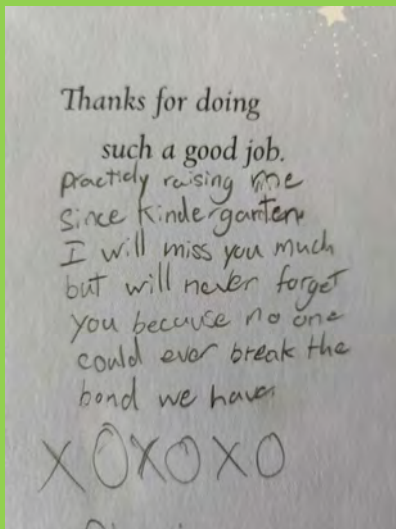 Thanks for doing
such a good job.
practicly raising me
since kindergarten
I will miss you much
but will never forget
you because no one
could ever break the
bond we have
XOXOXO